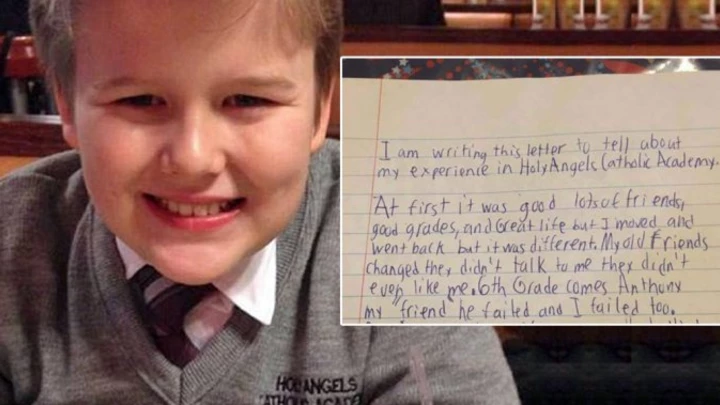 I am writing this letter to tell about
my experience in Holy Angels Catholic Academy.
At first it was good lots of friends,
good grades, and Great life but I moved and
went back but it was different. My old friends
changed they didn't talk to me they didn't
even like me. 6th Grade comes Anthony
my "friend" he failed and I failed too.
HOLY ANGELS
CATHOLIC ACADEMY